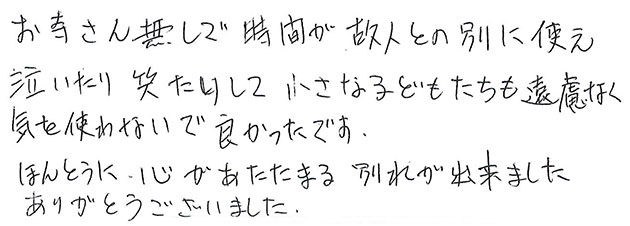 お寺さん無しで時間が故人との別に使え
泣いたり笑たりして小さな子どもたちも遠慮なく
気を使わないで良かったです.
ほんとうに心があたたまる別れが出来ました
ありがとうございました.